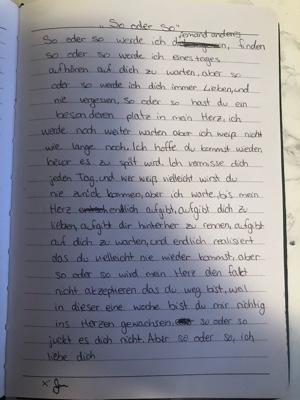 „So oder so"
jemand anderes
So oder so werde ich finden
so oder so werde ich eines tages
aufhören auf dich zu warten, aber so
oder so werde ich dich immer Lieben, und
nie vergessen, so oder so hast du ein
besonderen platz in mein Herz, ich
werde noch weiter warten aber ich weiß nicht
wie lange noch. Ich hoffe du kommst wieder,
bevor es zu spät wird. Ich vermisse dich
jeden Tag, und wer weiß vielleicht wirst du
nie zurück kommen, aber ich warte, bis mein
Herz endlich aufgibt, aufgibt dich zu
lieben, aufgibt dir hinterher zu rennen, aufgibt
auf dich zu warten, und endlich realisiert
das du vielleicht nie wieder kommst, aber
so oder so wird mein Herz den fakt
nicht akzeptieren das du weg bist, weil
in dieser eine woche bist du mir richtig
ins Herzen gewachsen, so oder so
juckt es dich nicht. Aber so oder so, ich
liebe dich